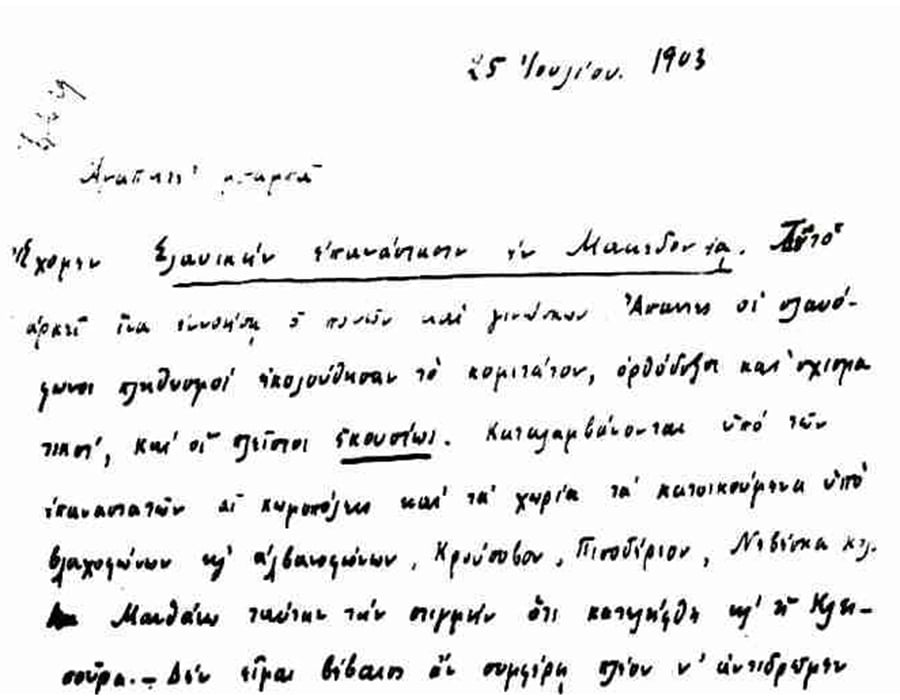 25 Ἰουλίου. 1903
Ἀγαπητέ μπαμπᾶ
Ἔχομεν Σλαυικὴν ἐπανάστασιν ἐν Μακεδονίᾳ. Τοῦτο
ἀρκεῖ ἵνα ἐννοήσῃ ὁ πονῶν καὶ γινώσκων Ἅπαντες οἱ σλαυό-
φωνοι πληθυσμοί ἠκολούθησαν τὸ κομιτάτον, ὀρθόδοξοι καὶ σχισμα
τικοί, καὶ οἱ πλεῖστοι ἑκουσίως. Καταλαμβάνονται ὑπό τῶν
ἐπαναστατῶν αἱ κωμοπόλεις καὶ τὰ χωρία τὰ κατοικούμενα ὑπὸ
βλαχοφώνων κ' ἀλβανοφώνων, Κρούσοβον, Πισοδέριον, Νεβέσκα κτλ.
Μανθάνω ταύτην τὴν στιγμήν ὅτι κατελήφθη κ' ἡ Κλει-
σοῦρα.— Δὲν εἶμαι βέβαιος ἂν συμφέρῃ πλέον ν' ἀντιδρῶμεν